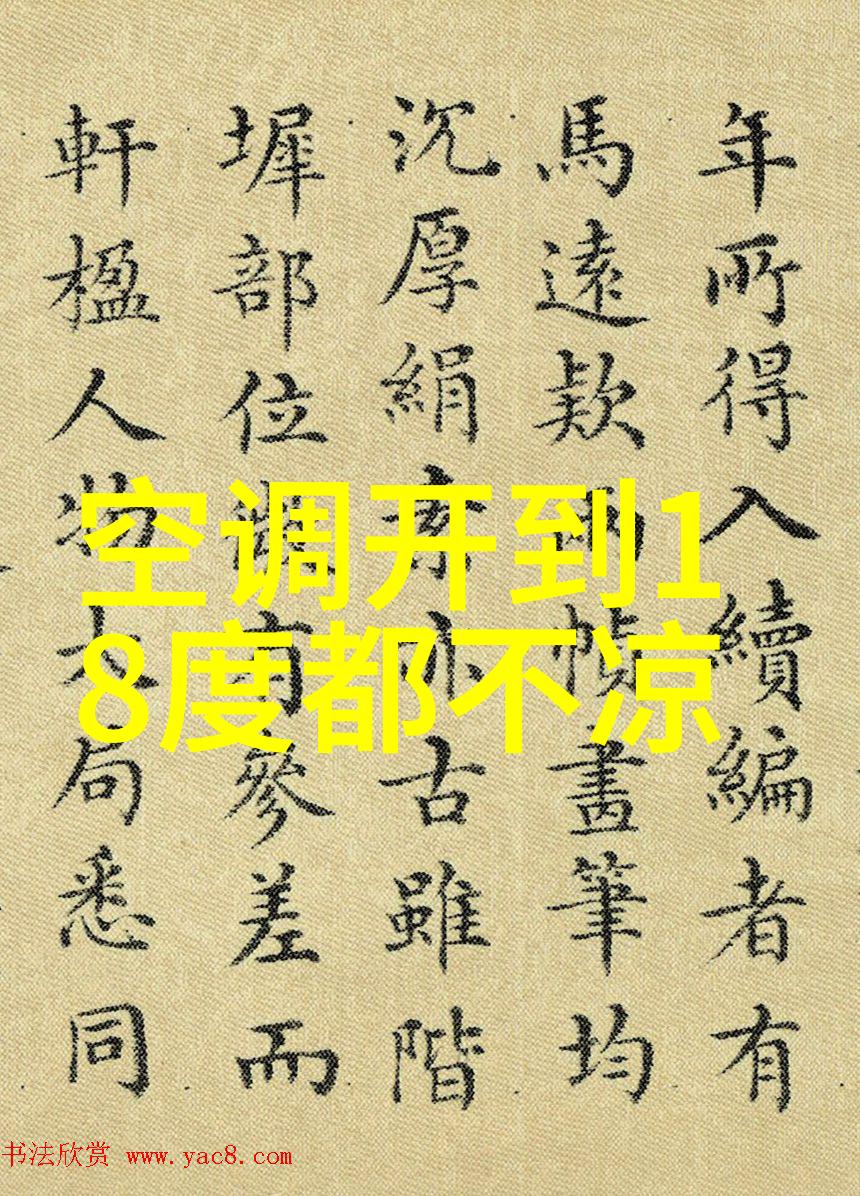 年所得入續編者有
馬遠款兩幀畫筆均
沉厚絹素亦古雖階
墀部位微有參差而
軒楹人物大局悉同
空调开到1
8度都不凉
书法欣赏 www.yac8.com